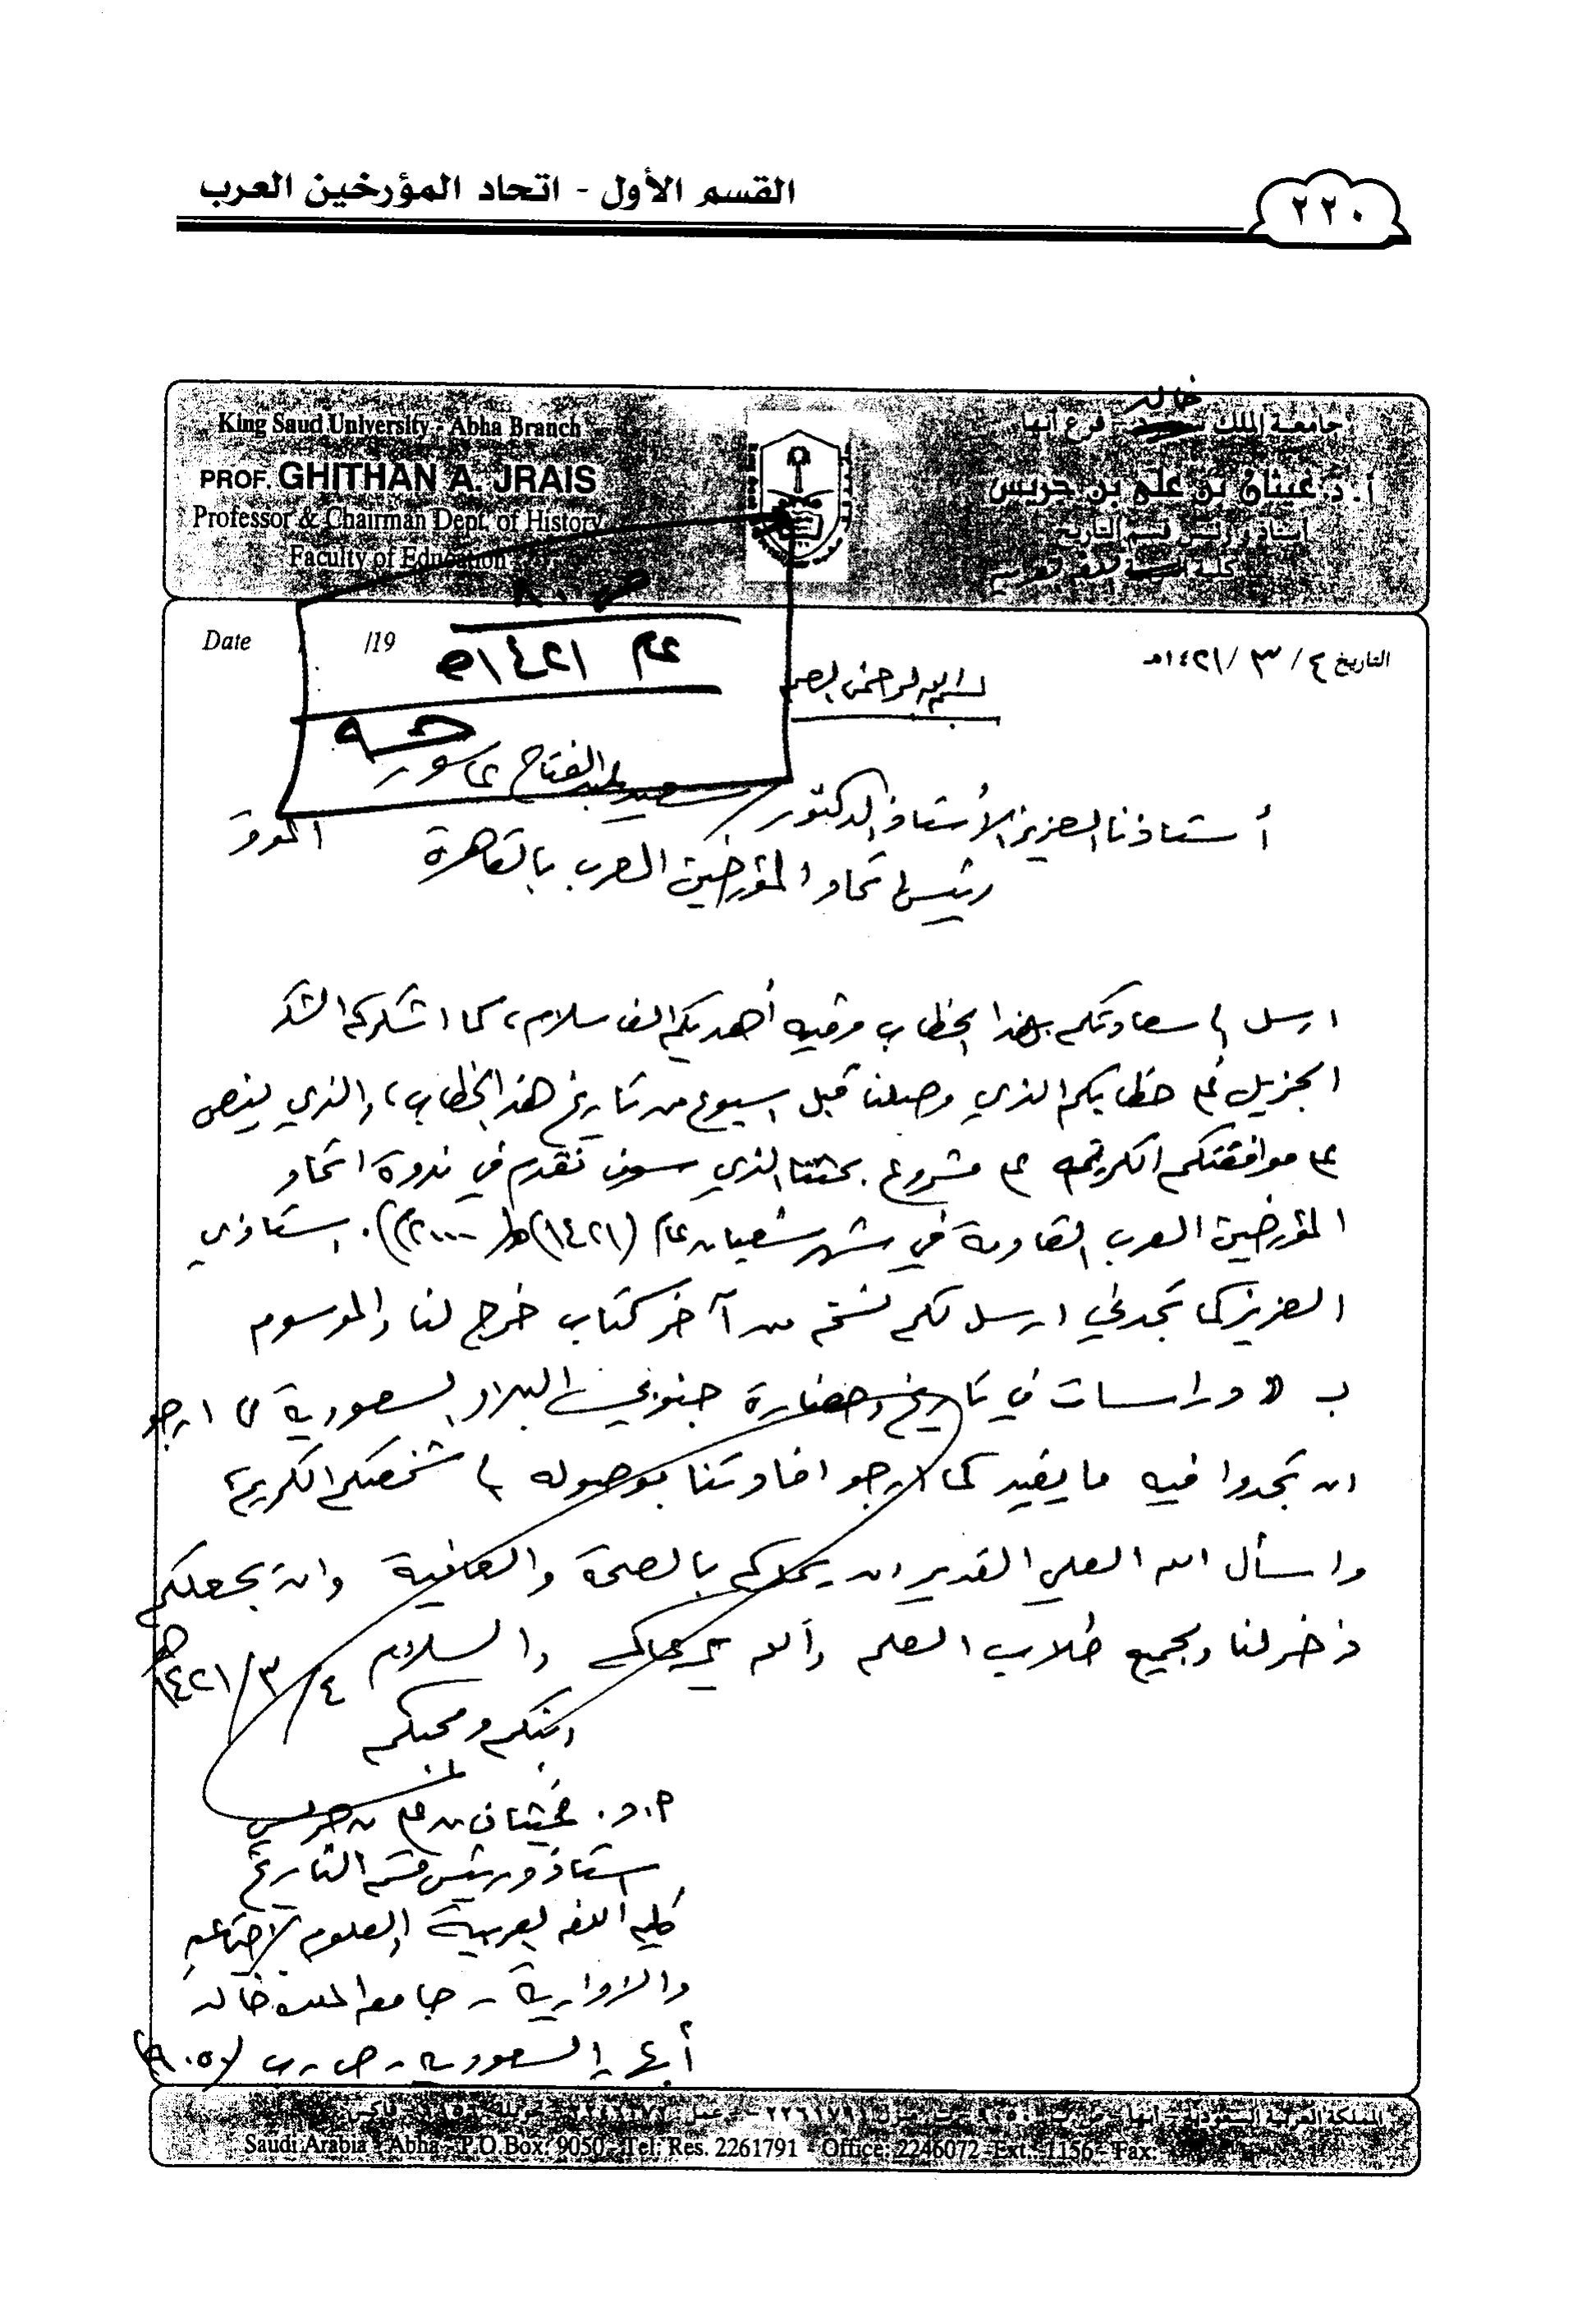 القسم الأول - اتحاد المؤرخين العرب
٢٢٠
King Saud University - Abha Branch
PROF. GHITHAN A. JRAIS
Professor & Chairman Dept. of History
Faculty of Education
خالد
جامعة الملك سعود - فرع أبها
أ. د. غيثان بن علي بن جريس
أستاذ ورئيس قسم التاريخ
كلية
Date / /19
التاريخ ٤ / ٣ / ١٤٢١هـ
عام ١٤٢١هـ
بسم الله الرحمن الرحيم
أستاذنا العزيز الأستاذ الدكتور / سعيد عبدالفتاح عاشور
رئيس اتحاد المؤرخين العرب بالقاهرة الموقر
ارسل إلى سعادتكم بهذا الخطاب وفيه أهديكم الف سلام، كما اشكركم الشكر
الجزيل على خطابكم الذي وصلنا قبل اسبوع من تاريخ هذا الخطاب، والذي ينص
على موافقتكم الكريمة على مشروع بحثنا الذي سوف نقدم في ندوة اتحاد
المؤرخين العرب القادمة في شهر شعبان عام (١٤٢١هـ/ ٢٠٠٠م). استاذي
العزيز كما تجدني ارسل لكم نسخة من آخر كتاب خرج لنا والموسوم
بـ «دراسات في تاريخ وحضارة جنوبي البلاد السعودية» ارجو
ان تجدوا فيه ما يفيد كما ارجو افادتنا بوصوله إلى شخصكم الكريم
واسأل الله العلي القدير ان بالصحة والعافية وان يجعلكم
ذخر لنا ولجميع طلاب العلم والله يرعاكم والسلام ٤ / ٣ / ١٤٢١هـ
ابنكم ومحبكم
أ.د. غيثان بن علي بن جريس
استاذ ورئيس قسم التاريخ
كلية اللغة العربية والعلوم الاجتماعية
والادارية - جامعة الملك خالد
أبها - السعودية - ص.ب (٩٠٥٠)
المملكة العربية السعودية - أبها - ص.ب ٩٠٥٠ - ت منزل ٢٢٦١٧٩١ - عمل ٢٢٤٦٠٧٢ - تحويلة ١١٥٦ - فاكس
Saudi Arabia - Abha - P.O.Box: 9050 - Tel: Res. 2261791 - Office: 2246072 - Ext.: 1156 - Fax: